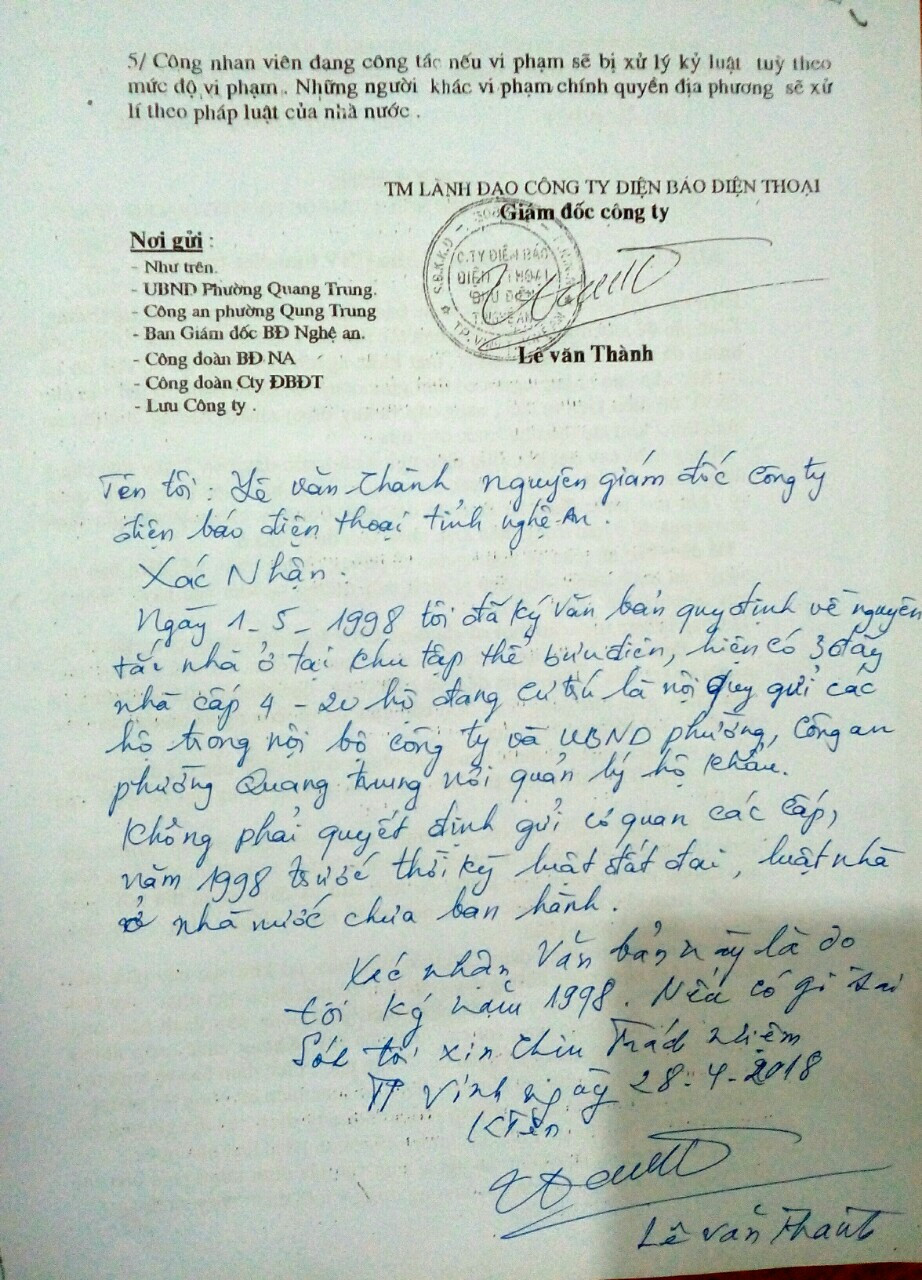 5/ Công nhan viên đang công tác nếu vi phạm sẽ bị xử lý kỷ luật tuỳ theo
mức độ vi phạm . Những người khác vi phạm chính quyền địa phương sẽ xử
lí theo pháp luật của nhà nước .
TM LÃNH ĐẠO CÔNG TY ĐIỆN BÁO ĐIỆN THOẠI
Giám đốc công ty
C.TY ĐIỆN BÁO
ĐIỆN THOẠI
Lê văn Thành
Nơi gửi :
- Như trên.
- UBND Phường Quang Trung.
- Công an phường Qung Trung
- Ban Giám đốc BĐ Nghệ an.
- Công đoàn BĐ NA
- Công đoàn Cty ĐBĐT
- Lưu Công ty .
Tên tôi : Lê văn Thành nguyên giám đốc công ty
điện báo điện thoại tỉnh nghệ An .
Xác Nhận .
Ngày 1 - 5 - 1998 tôi đã ký văn bản quy định về nguyên
tắc nhà ở tại khu tập thể bưu điện, hiện có 3 dãy
nhà cấp 4 - 20 hộ đang cư trú là nội quy gửi các
hộ trong nội bộ công ty và UBND phường, Công an
phường Quang trung nơi quản lý hộ khẩu.
Không phải quyết định gửi cơ quan các cấp,
năm 1998 trước thời kỳ luật đất đai, luật nhà
ở nhà nước chưa ban hành .
Xác nhận Văn bản này là do
tôi ký năm 1998 . Nếu có gì sai
Sót tôi xin chịu Trách nhiệm
TP Vinh ngày 28-4-2018
Ký tên.
Lê văn Thành